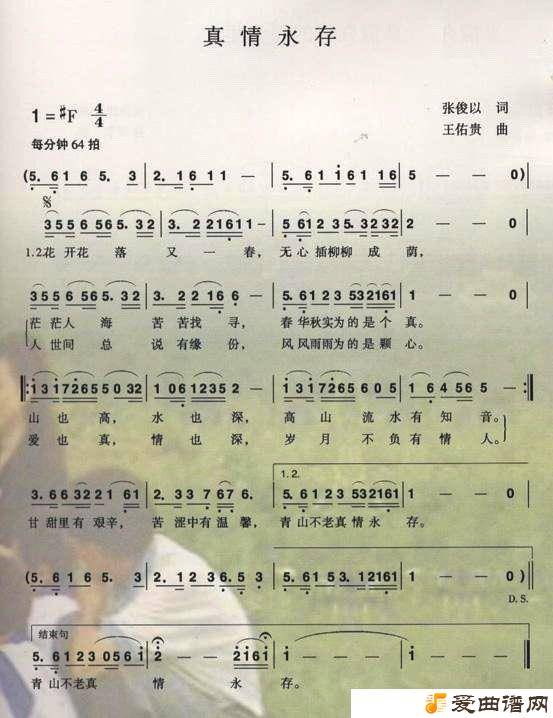 真情永存
1=♯F 4/4
张俊以 词
每分钟64拍
王佑贵 曲
(5. 6 1 6 5. 3 | 2. 1 6 1 1 — | 5. 6 1 i 6 1 1 6 | 5 — — 0)
3 5 5 6 5 6 5. 3 2 | 3. 2 2 1 6 1 1 — | 5 6 1 2 3 5. 3 2 3 2 | 2 — — 0 |
1.2.花 开花 落 又 一 春, 无心 插柳柳 成 荫,
3 5 5 6 5 6 5. 3 2 | 3. 2 2 1 6 6 — | 5. 6 1 2 3 5 3 2 1 6 1 | 1 — — 0 |
茫茫人 海 苦 苦找 寻, 春 华秋实为 的 是 个 真。
人世间 总 说 有缘 份, 风 风雨雨为 的 是 颗 心。
山 也 高, 水 也 深, 高 山 流 水 有 知 音。
爱 也 真, 情 也 深, 岁 月 不 负 有 情 人。
1. 2.
3. 6 6 3 2 2 1 6 1 | 2. 3 3 7 6 7 6 | 5. 6 1 2 3 5 3 2 1 6 1 | 1 — — 0 |
甘 甜里有 艰辛, 苦 涩中有 温 馨, 青山不老真 情 永 存。
(5. 6 1 6 5. 3 | 2. 1 2 3 6. 5 3 | 5. 6 1 5 3. 2 1 6 1 | 1 — — 0)
D.S.
结束句
5. 6 1 2 3 0 5 6 1 | 2 — — 2 1 6 1 | 1 — — — | 1 — — 0
青山不老真 情 永 存。
爱曲谱网